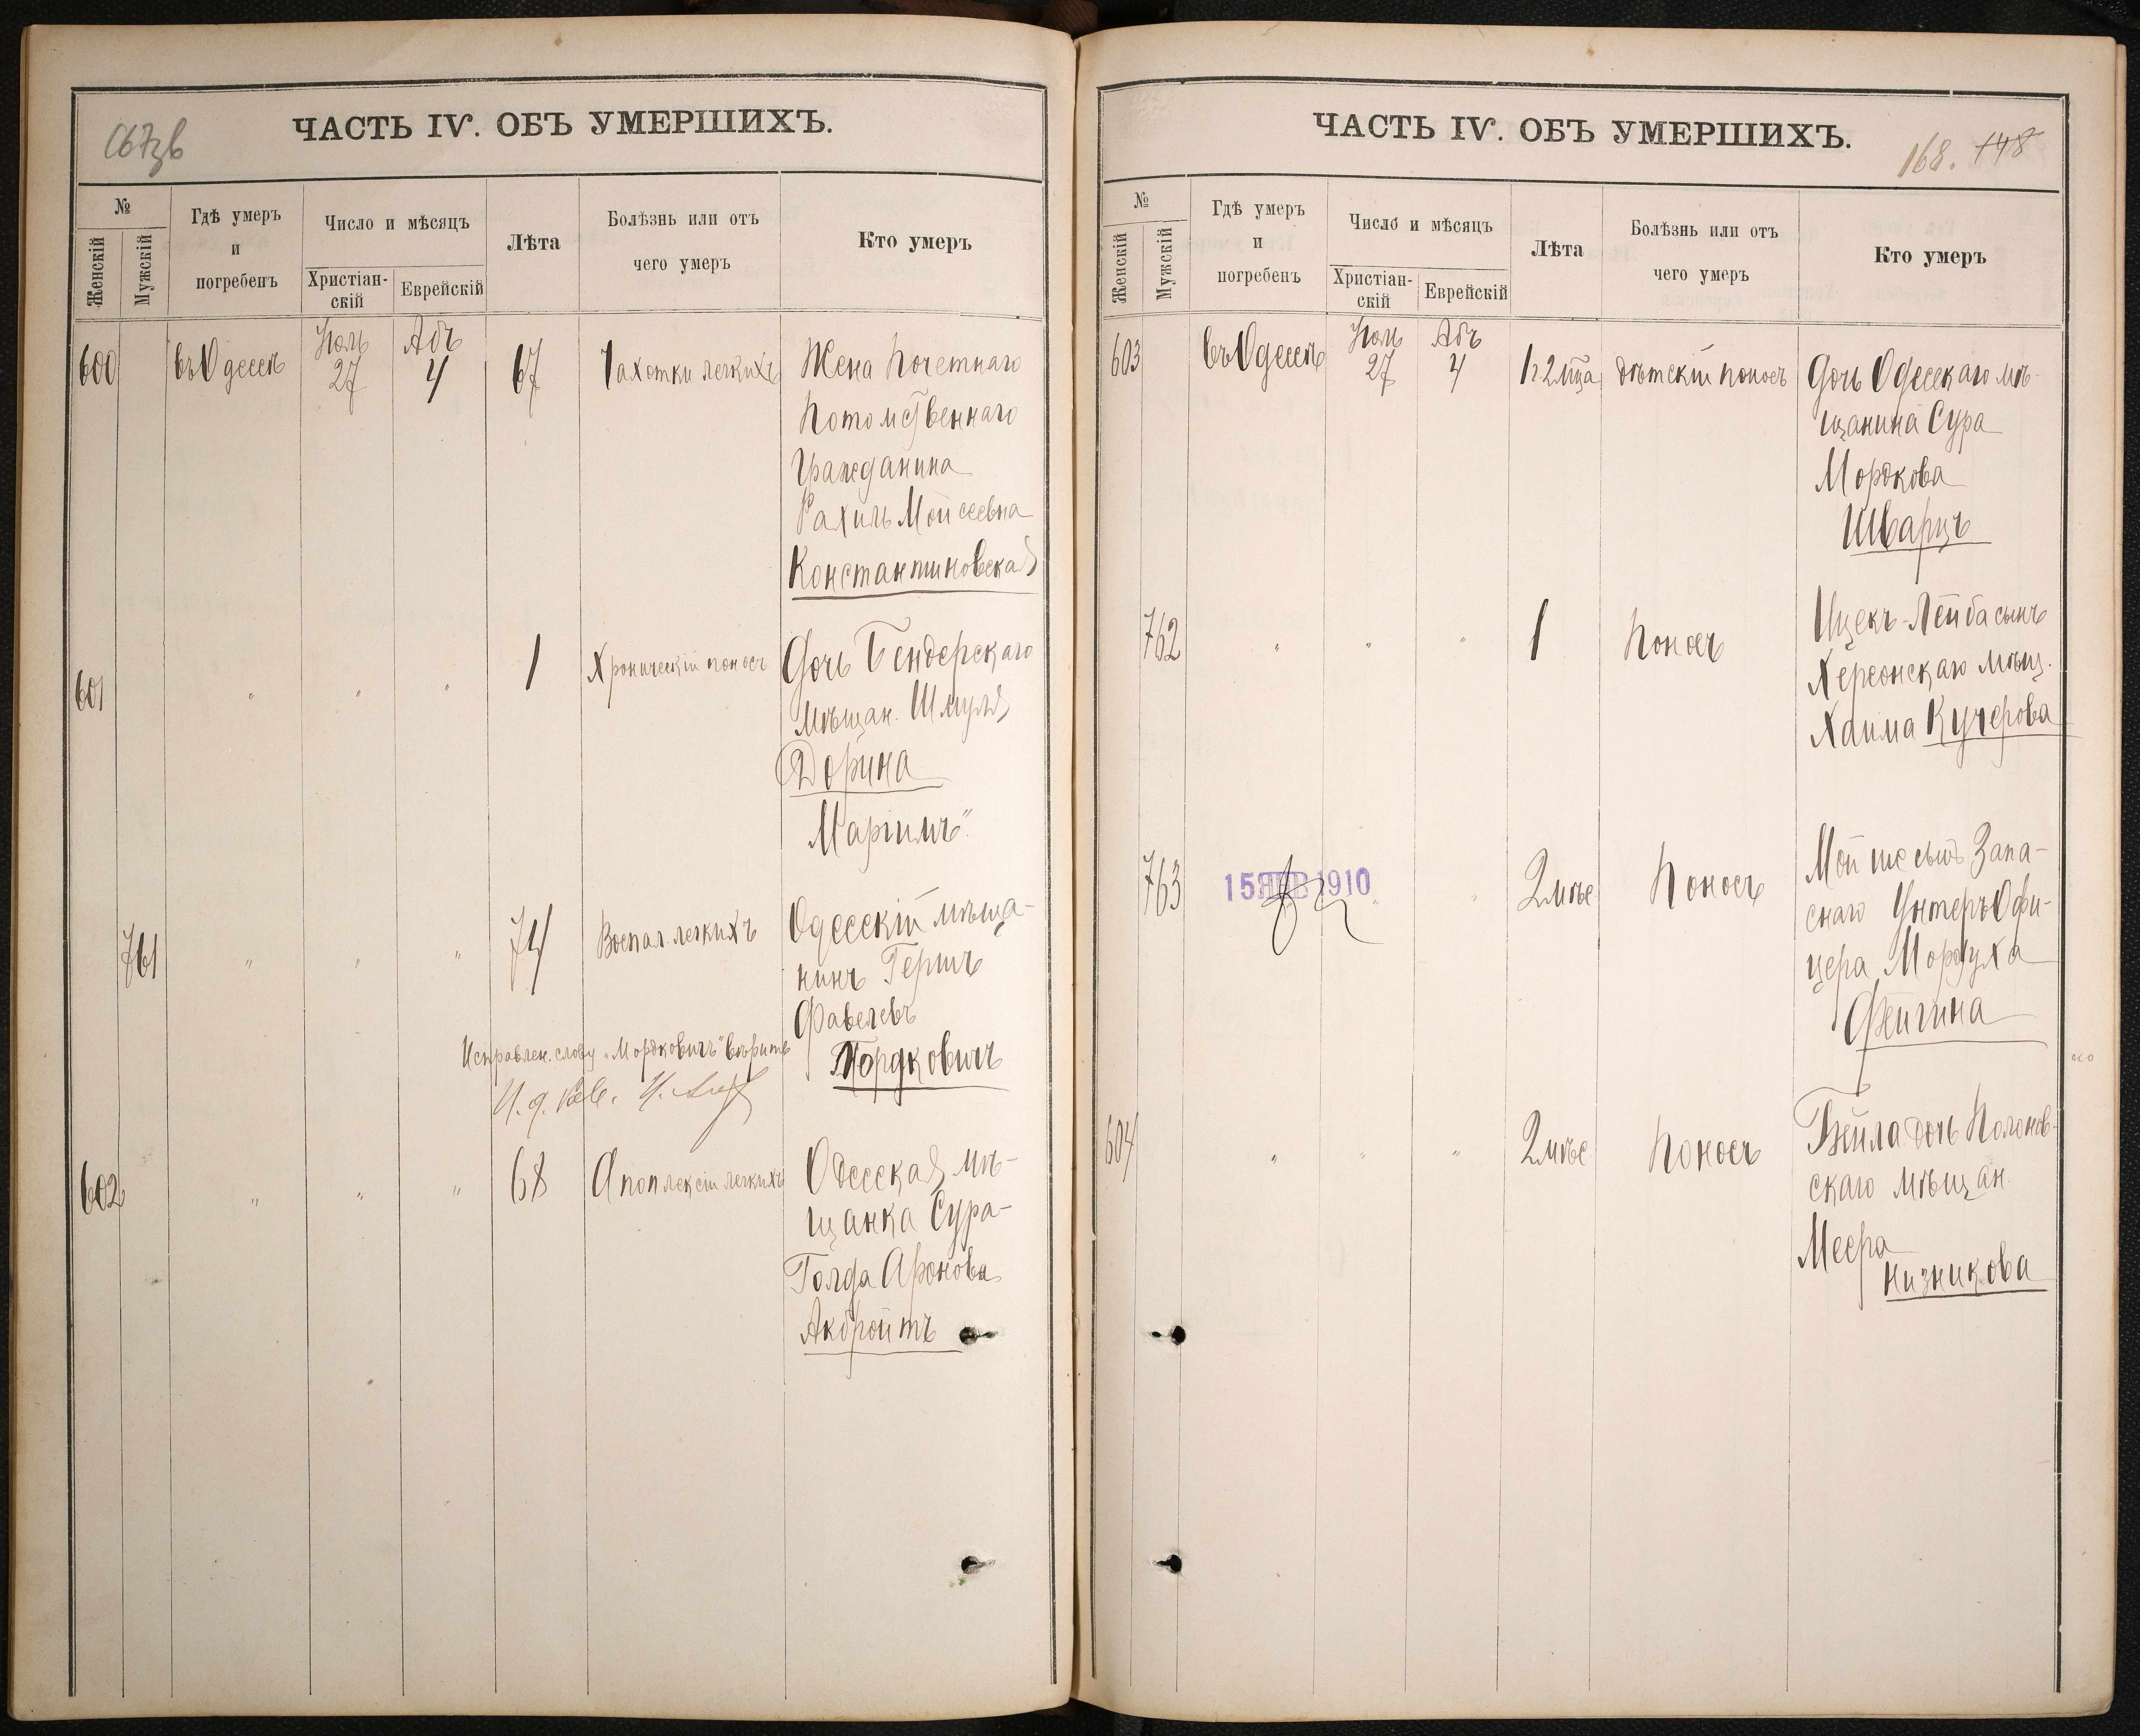 ЧАСТЬ IV. ОБЪ УМЕРШИХЪ.
№
Женскій
Мужскій
Гдѣ умеръ
и
погребенъ
Число и мѣсяцъ
Христіан-
скій
Еврейскій
Лѣта
Болѣзнь или отъ
чего умеръ
Кто умеръ
600 въ Одессѣ Іюль 27 Абъ 4 67 Чахотки легкихъ Жена Почетнаго
Потомственнаго
Гражданина
Рахиль Мойсеевна
Константиновская
601 " " " 1 Хроническій поносъ Дочь Бендерскаго
мѣщан. Шмуля
Дорина
Маріимъ"
761 " " " 74 Воспал. легкихъ Одесскій мѣща-
нинъ Гершъ
Фавелевъ
Мордковичъ
Исправлен. слову "Мордковичъ" вѣрить
602 " " " 68 Апоплексіи легкихъ Одесская мѣ-
щанка Сура-
Голда Аронова
Акбройтъ
ЧАСТЬ IV. ОБЪ УМЕРШИХЪ.
168. 148
№
Женскій
Мужскій
Гдѣ умеръ
и
погребенъ
Число и мѣсяцъ
Христіан-
скій
Еврейскій
Лѣта
Болѣзнь или отъ
чего умеръ
Кто умеръ
603 въ Одессѣ Іюль 27 Абъ 4 1г 2 мца дѣтскій поносъ Дочь Одесскаго мѣ-
щанина Сура
Мордкова
Шварцъ
762 " " " 1 Поносъ Ицекъ-Лейба сынъ
Херсонскаго мѣщ.
Хаима Кучерова
763 15 ЯНВ 1910 " " 2 мѣс Поносъ Мойше сынъ Запа-
снаго Унтеръ Офи-
цера Мордуха
Фейгина
604 " " " 2 мѣс Поносъ Бейла дочь Полонов-
скаго мѣщан.
Меера
Низникова